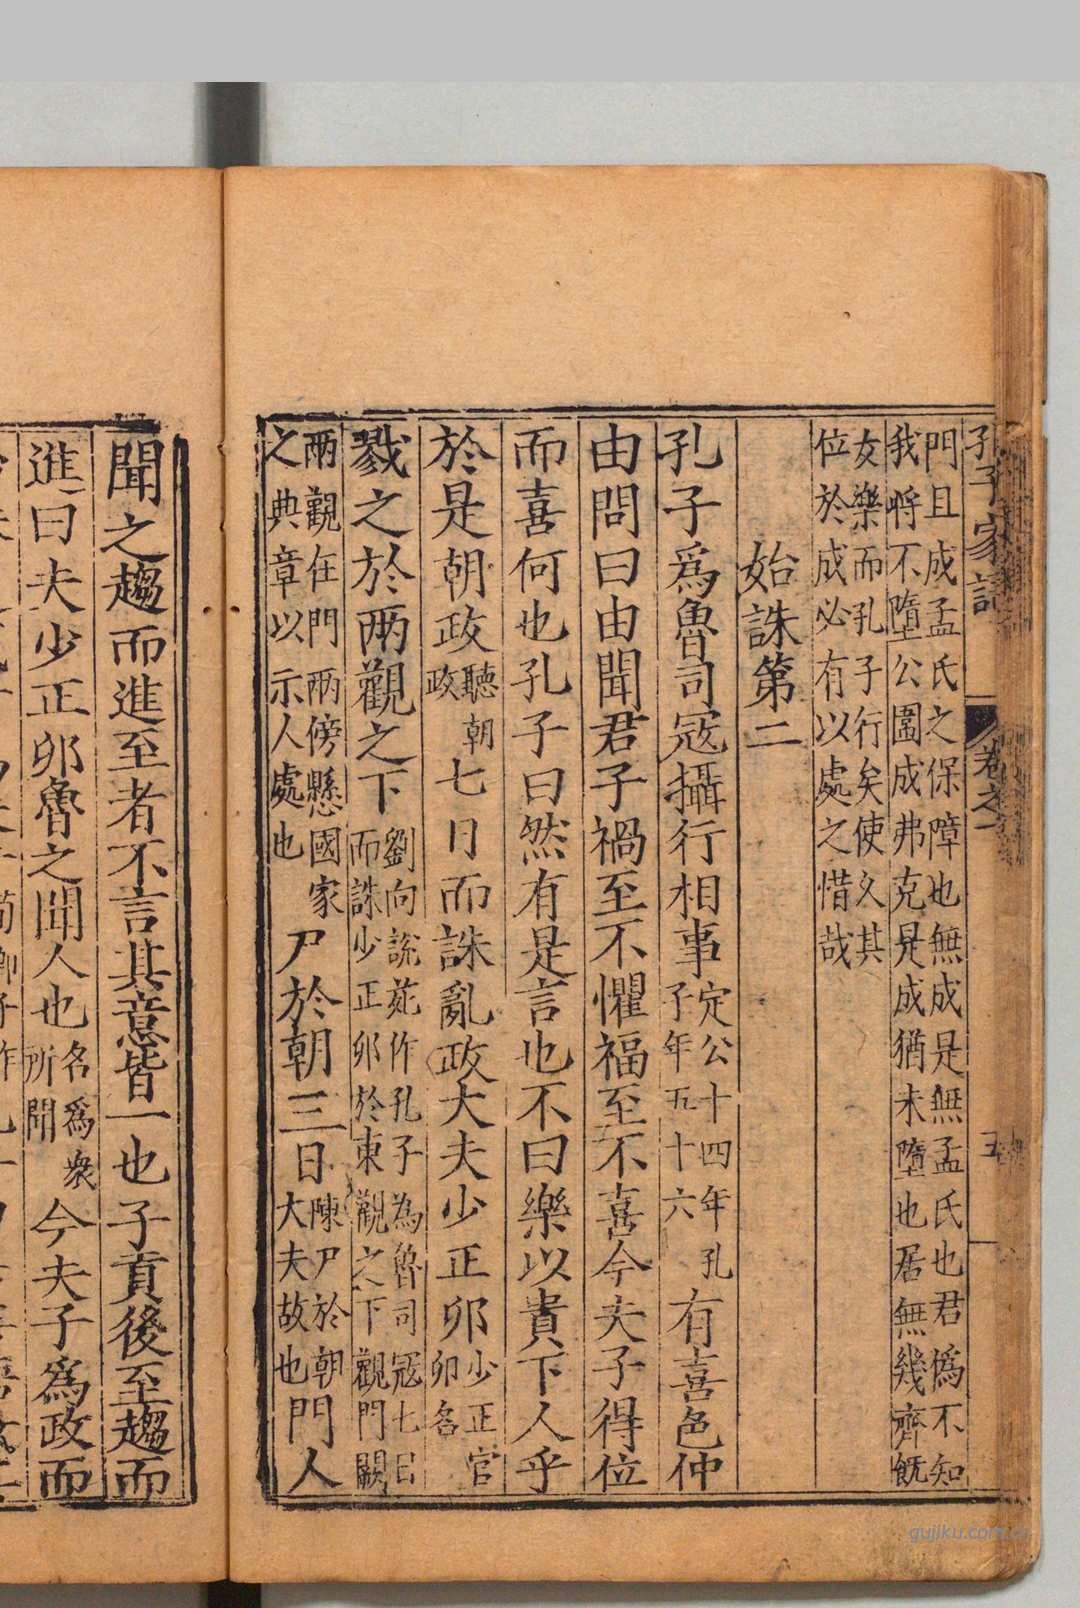 孔子家語 卷之一 五
門且成孟氏之保障也無成是無孟氏也君僞不知
我將不墮公圍成弗克是成猶未墮也居無幾齊旣
女樂而孔子行矣使久其
位於成必有以處之惜哉
始誅第二
孔子爲魯司寇攝行相事定公十四年孔子年五十六有喜色仲
由問曰由聞君子禍至不懼福至不喜今夫子得位
而喜何也孔子曰然有是言也不曰樂以貴下人乎
於是朝政聽朝政七日而誅亂政大夫少正卯少正官卯名
戮之於兩觀之下劉向說苑作孔子為魯司寇七日而誅少正卯於東觀之下觀門闕
兩觀在門兩傍懸國家之典章以示人處也尸於朝三日陳尸於朝大夫故也門人
聞之趨而進至者不言其意皆一也子貢後至趨而
進曰夫少正卯魯之聞人也名爲衆所聞今夫子爲政而
gujiku.com.cn